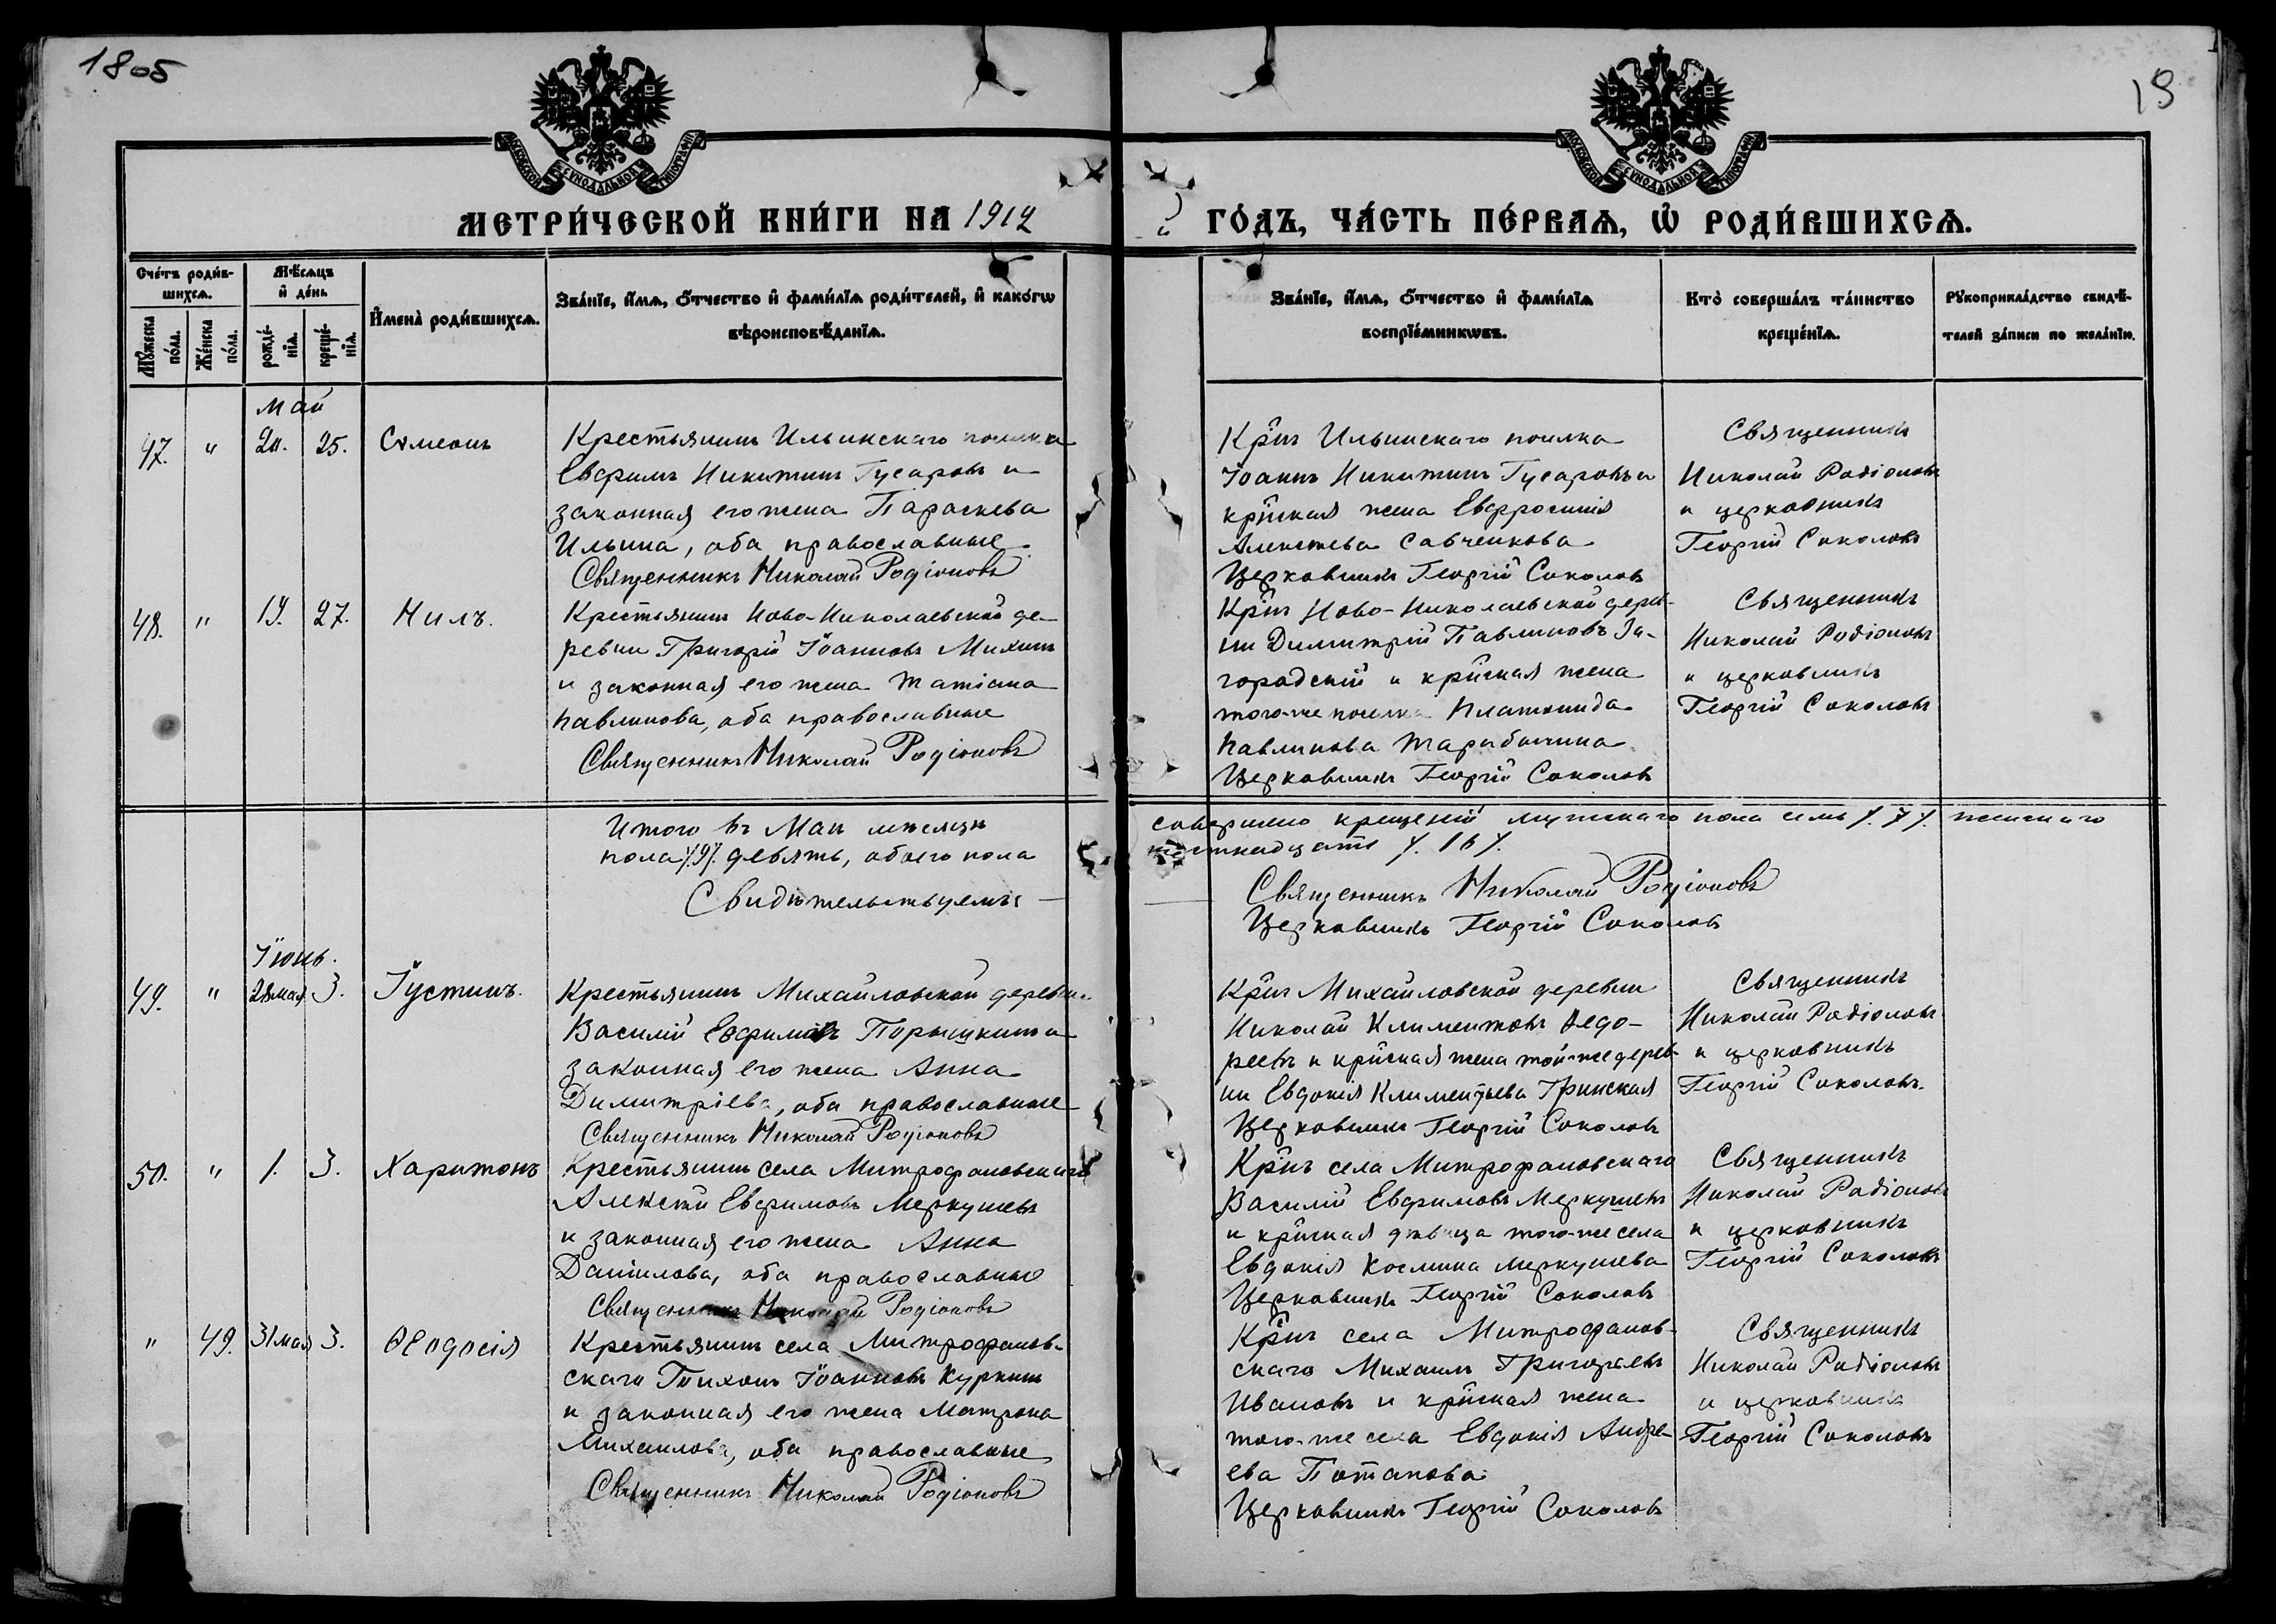 1805
19
МОСКОВСКОЙ СѴНОДАЛЬНОЙ ТИПОГРАФІИ
МОСКОВСКОЙ СѴНОДАЛЬНОЙ ТИПОГРАФІИ
МЕТРИ́ЧЕСКОЙ КНИ́ГИ НА 1912
ГО́ДЪ, ЧА́СТЬ ПЕ́РВАѦ, Ѡ҆ РОДИ́ВШИХСѦ.
Счетъ роди́в-
шихсѧ.
Мꙋжеска по́ла.
Же́нска по́ла.
Мѣ́сѧцъ
и҆ де́нь
рожде́-
нїѧ.
креще́-
нїѧ.
И҆мена̀ роди́вшихсѧ.
Зва́нїе, и҆́мѧ, ѻ҆́тчество и҆ фами́лїѧ роди́телей, и҆ како́гѡ
вѣроисповѣ́данїѧ.
Зва́нїе, и҆́мѧ, ѻ҆́тчество и҆ фами́лїѧ
воспрїе́мникѡвъ.
Кто̀ соверша́лъ та́инство
креще́нїѧ.
Рꙋкоприкла́дство свидѣ́-
телей за́писи по жела́нїю.
Май
47. " 25. Сѵмеонъ
Крестьянинъ Ильинскаго поселка
Евфимъ Никитинъ Гусаровъ и
законная его жена Параскева
Ильина, оба православные
Священникъ Николай Родіоновъ
Кр̃нъ Ильинскаго поселка
Іоаннъ Никитинъ Гусаровъ и
кр̃нская жена Евфросинія
Алексѣева Савченкова
Церковникъ Георгій Соколовъ
Священникъ
Николай Родіоновъ
и церковникъ
Георгій Соколовъ
48. " 19. 27. Нилъ.
Крестьянинъ Ново-Николаевской де-
ревни Григорій Іоанновъ Михинъ
и законная его жена Татіана
Павлинова, оба православные
Священникъ Николай Родіоновъ
Кр̃нъ Ново-Николаевской дерев-
ни Димитрій Павлиновъ За-
городскій и кр̃нская жена
того-же поселка Платонида
Павлинова
Церковникъ Георгій Соколовъ
Священникъ
Николай Родіоновъ
и церковникъ
Георгій Соколовъ
Итого въ Маѣ мѣсяцѣ совершено крещеній мужскаго пола семь /.7/. женскаго
пола /.9/. девять, обоего пола шестнадцать /.16/.
Свидѣтельствуемъ:
Священникъ Николай Родіоновъ
Церковникъ Георгій Соколовъ
Іюнь.
49. " 28 мая 3. Іустинъ.
Крестьянинъ Михайловской деревни
Василій Евфимовъ Порышкинъ и
законная его жена Анна
Димитріева, оба православные
Священникъ Николай Родіоновъ
Кр̃нъ Михайловской деревни
Николай Климентовъ Ѳедо-
ревъ и кр̃нская жена той-же дерев-
ни Евдокія Климентьева Гринская
Церковникъ Георгій Соколовъ
Священникъ
Николай Родіоновъ
и церковникъ
Георгій Соколовъ.
50. " 1. 3. Харитонъ
Крестьянинъ села Митрофановскаго
Алексѣй Евфимовъ Меркушевъ
и законная его жена Анна
Даніилова, оба православные
Священникъ Николай Родіоновъ
Кр̃нъ села Митрофановскаго
Василій Евфимовъ Меркушевъ
и кр̃нская дѣвица того-же села
Евдокія Космина Меркушева
Церковникъ Георгій Соколовъ
Священникъ
Николай Родіоновъ
и церковникъ
Георгій Соколовъ
" 49. 31 мая 3. Ѳеодосія
Крестьянинъ села Митрофанов-
скаго Тихонъ Іоанновъ Куркинъ
и законная его жена Матрона
Михаилова, оба православные
Священникъ Николай Родіоновъ
Кр̃нъ села Митрофанов-
скаго Михаилъ Григорьевъ
Ивановъ и кр̃нская жена
того-же села Евдокія Андре-
ева Потапова
Церковникъ Георгій Соколовъ
Священникъ
Николай Родіоновъ
и церковникъ
Георгій Соколовъ